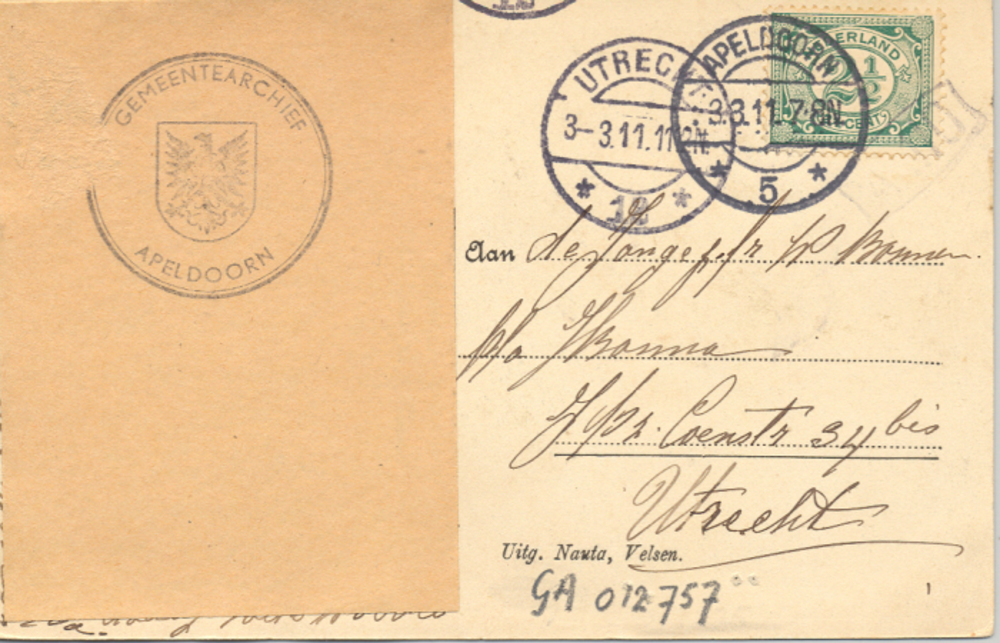 GEMEENTEARCHIEF
APELDOORN
UTRECHT
3-3.11.11-12N
12
APELDOORN
3.3.11.7-8N
5
NEDERLAND
2½
CENT
Aan de Jongejfr
p/a Bonna
J. Pz. Coenstr 34 bis
Utrecht
Uitg. Nauta, Velsen.
GA 012757